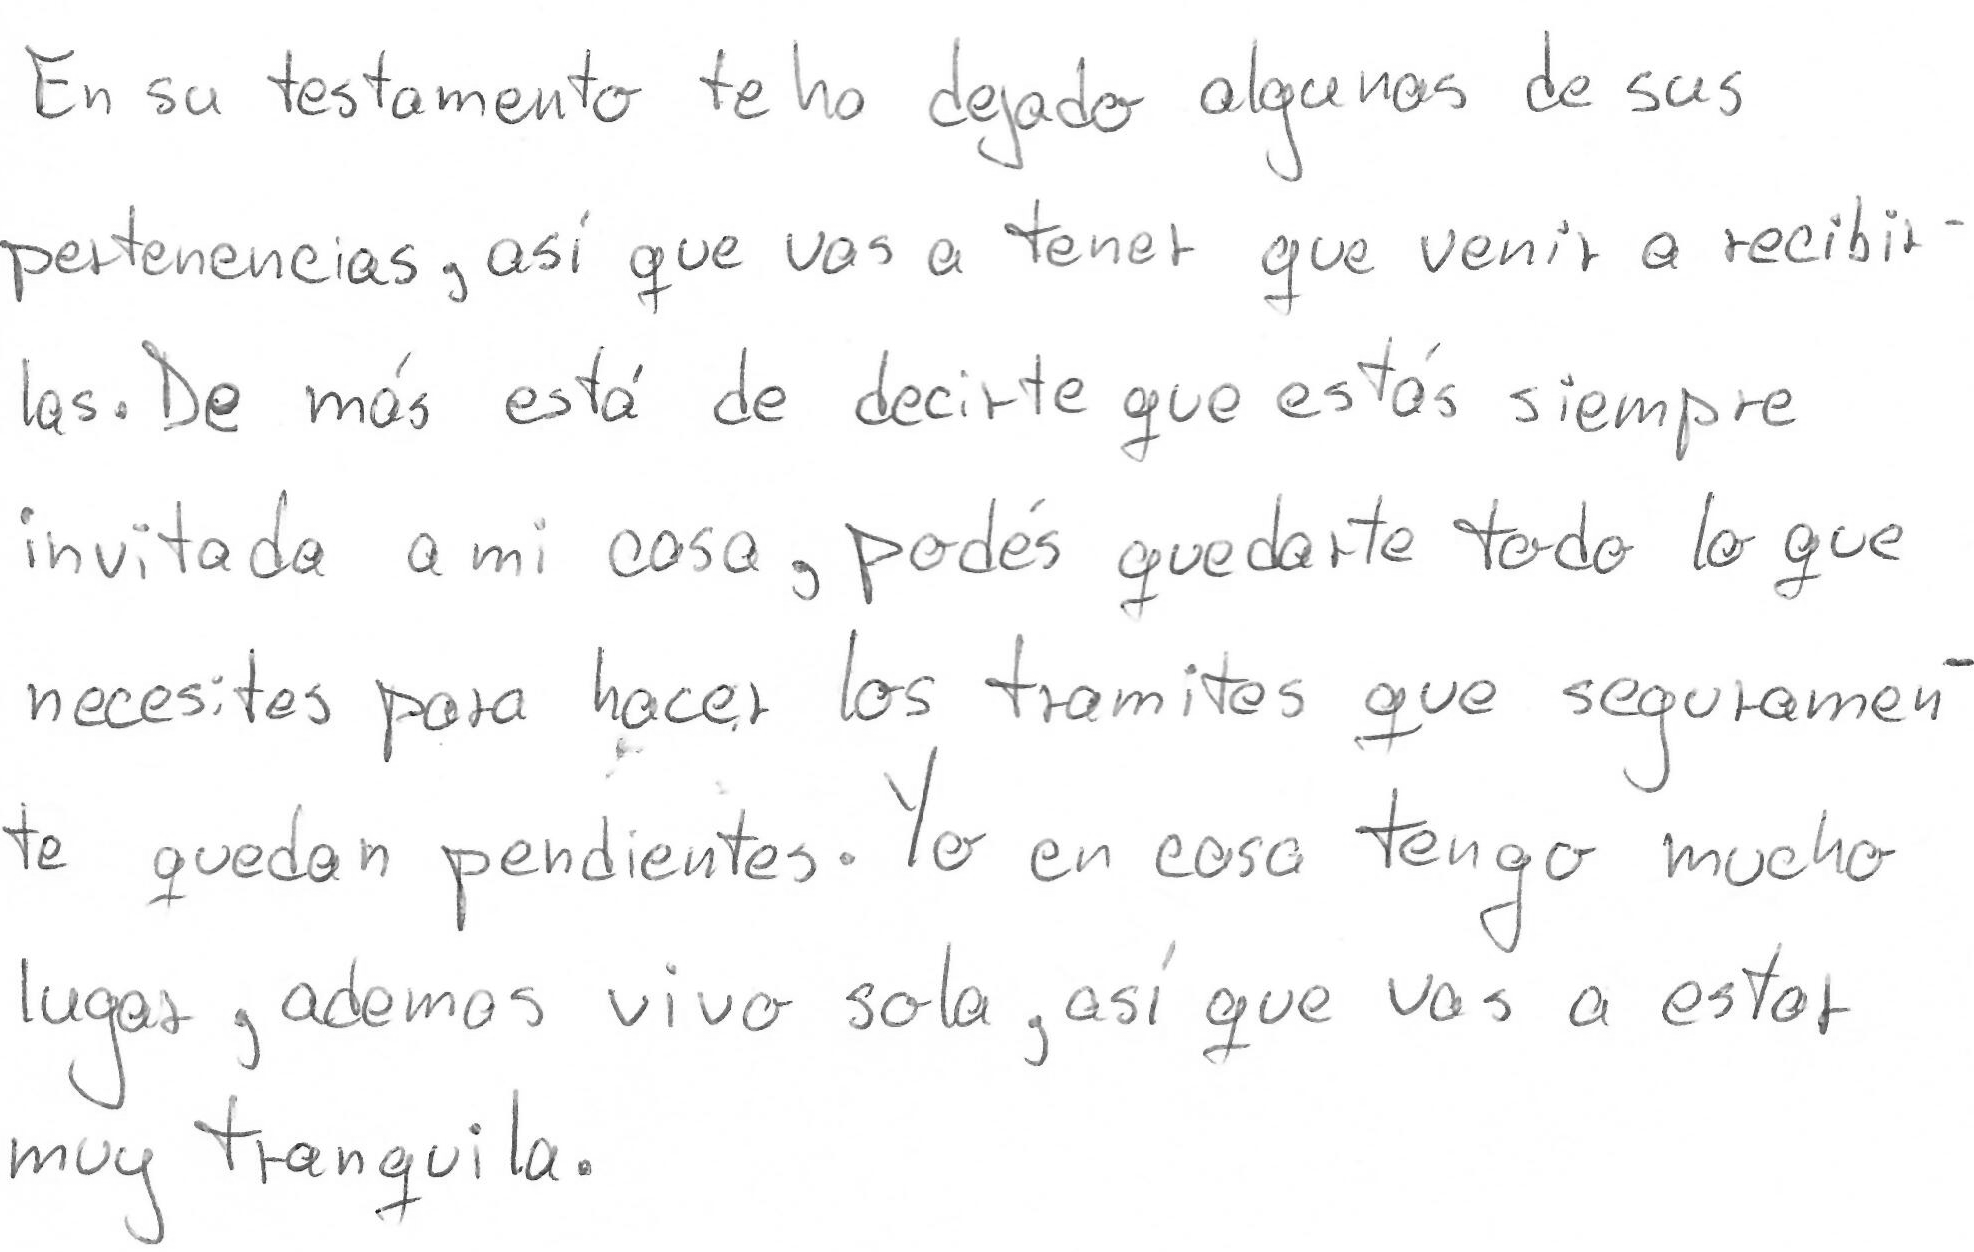 En su testamento te ha dejado algunas de sus
pertenencias, así que vas a tener que venir a recibir-
las. De más está de decirte que estás siempre
invitada a mi casa, podés quedarte todo lo que
necesites para hacer los tramites que seguramen-
te quedan pendientes. Yo en casa tengo mucho
lugar, ademas vivo sola, así que vas a estar
muy tranquila.